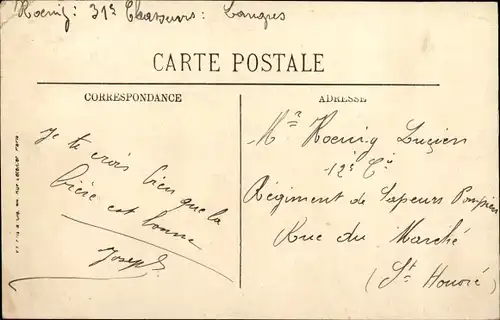 Koenig: 31e Chasseurs: Langres
CARTE POSTALE
CORRESPONDANCE
ADRESSE
Je te crois bien que la
bière est bonne
Joseph
Mr Koenig Lucien
12e Cie
Régiment de Sapeurs Pompiers
Rue du Marché
(St Honoré)